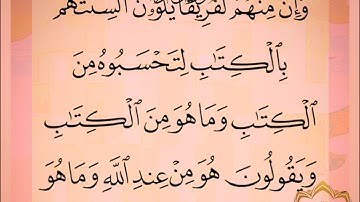 وَإِنَّ مِنْهُمْ لَفَرِيقًا يَلْوُۥنَ أَلْسِنَتَهُم
بِٱلْكِتَٰبِ لِتَحْسَبُوهُ مِنَ
ٱلْكِتَٰبِ وَمَا هُوَ مِنَ ٱلْكِتَٰبِ
وَيَقُولُونَ هُوَ مِنْ عِندِ ٱللَّهِ وَمَا هُوَ